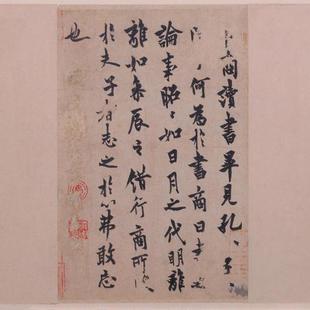 讀書畢見孔、子、
何為於書商曰書
論事昭、如日月之代明離
離如參辰之錯行商所
於夫子者志之於心弗敢忘
也